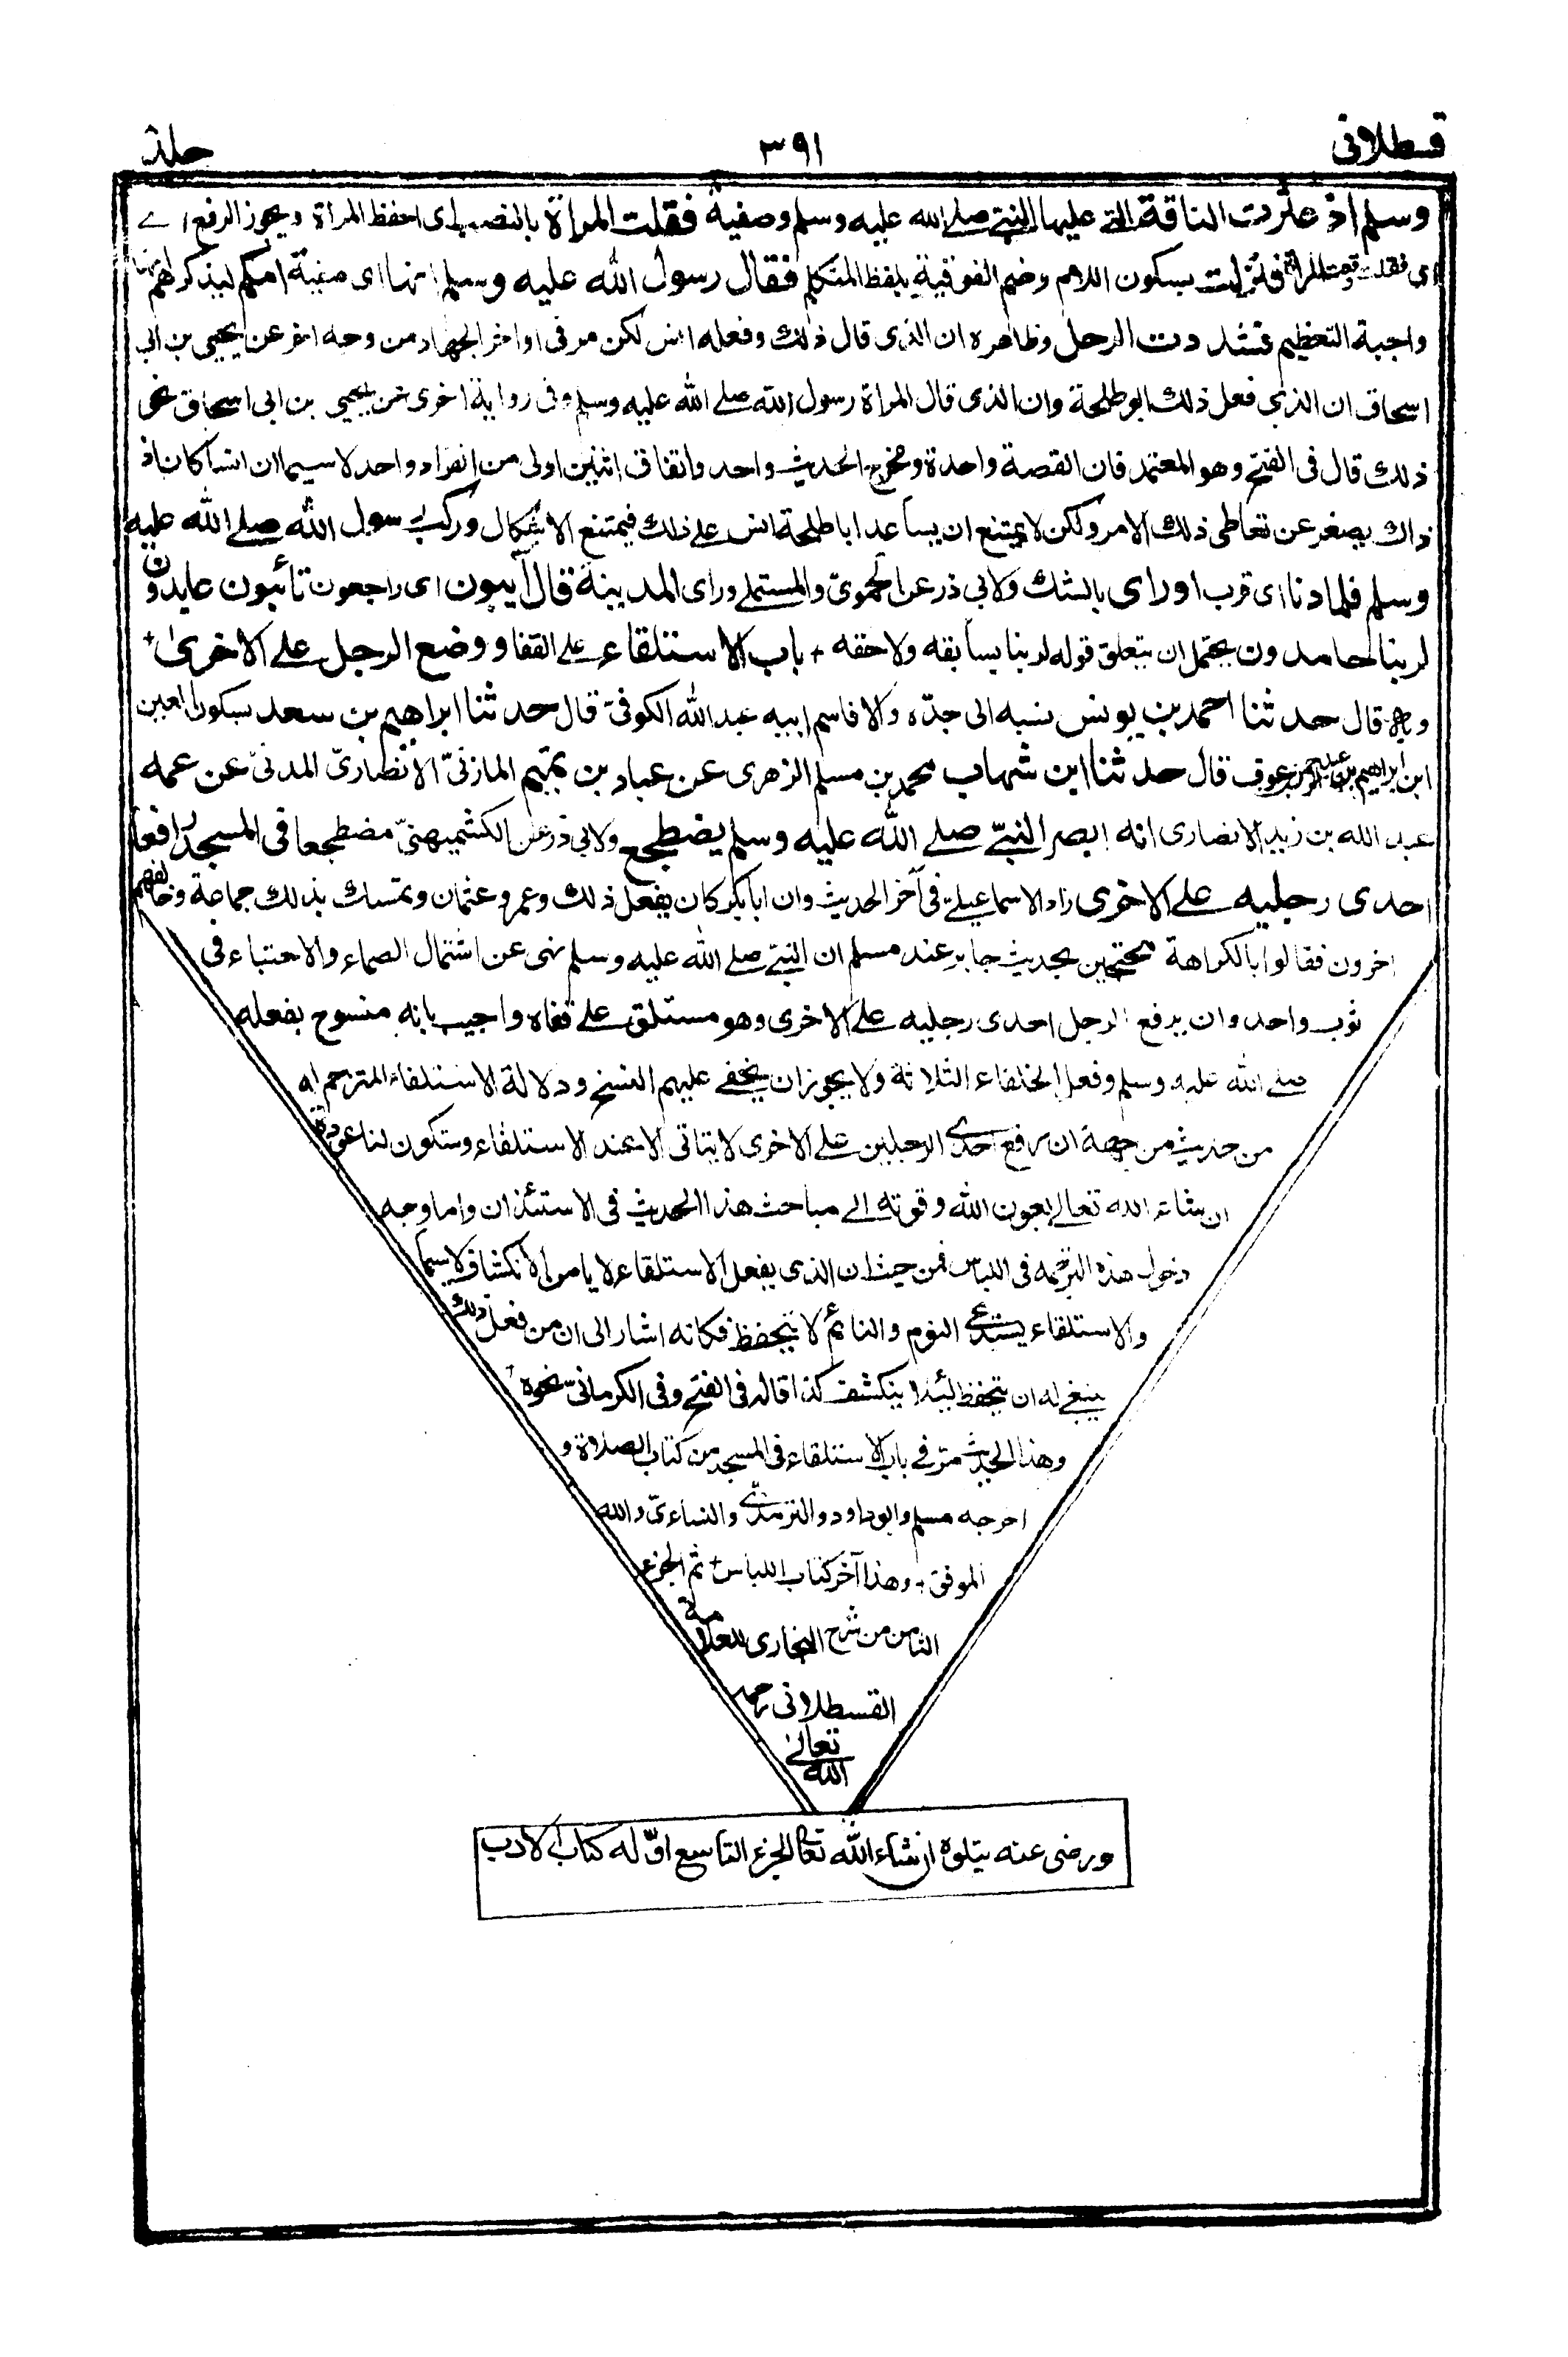 قسطلانى
٣٩١
جلد
وسلم اذ عثرت الناقة التى عليها النبى صلى الله عليه وسلم وصفية فقلت المراة بالنصب اى احفظ المراة ويجوز الرفع اى
اى فقلت وقعت المراة فنزلت بسكون اللام وضم الفوقية بلفظ المتكلم فقال رسول الله عليه وسلم انها اى صفية امكم ليذكرهم انها
واجبة التعظيم فشددت الرحل وظاهره ان الذى قال ذلك وفعله انس لكن مر فى اواخر الجهاد من وجه اخر عن يحيى بن ابى
اسحاق ان الذى فعل ذلك ابو طلحة وان الذى قال المراة رسول الله صلى الله عليه وسلم وفى رواية اخرى عن يحيى بن ابى اسحاق نحو
ذلك قال فى الفتح وهو المعتمد فان القصة واحدة ومخرج الحديث واحد واتفاق اثنين اولى من انفراد واحد لا سيما ان انسا كان اذ
ذاك يصغر عن تعاطى ذلك الامر ولكن لا يمتنع ان يساعد ابا طلحة انس على ذلك فيمتنع الاشكال وركب رسول الله صلى الله عليه
وسلم فلما دنا اى قرب او راى بالشك ولابى ذر عن الحموى والمستملى وراى المدينة قال آيبون اى راجعون تائبون عابدون
لربنا حامدون يحتمل ان يتعلق قوله لربنا بسابقه ولاحقه + باب الاستلقاء على القفا ووضع الرجل على الاخرى +
وبه قال حدثنا احمد بن يونس نسبه الى جده والا فاسم ابيه عبد الله الكوفى قال حدثنا ابراهيم بن سعد بسكون العين
ابن ابراهيم بن عبد الرحمن بن عوف قال حدثنا ابن شهاب محمد بن مسلم الزهرى عن عباد بن تميم المازنى الانصارى المدنى عن عمه
عبد الله بن زيد الانصارى انه ابصر النبى صلى الله عليه وسلم يضطجع ولابى ذر عن الكشميهنى مضطجعا فى المسجد رافعا
احدى رجليه على الاخرى زاد الاسماعيلى فى آخر الحديث وان ابا بكر كان يفعل ذلك وعمر وعثمان وتمسك بذلك جماعة وخالفهم
اخرون فقالوا بالكراهة محتجين بحديث جابر عند مسلم ان النبى صلى الله عليه وسلم نهى عن اشتمال الصماء والاحتباء فى
ثوب واحد وان يرفع الرجل احدى رجليه على الاخرى وهو مستلق على قفاه واجيب بانه منسوخ بفعله
صلى الله عليه وسلم وفعل الخلفاء الثلاثة ولا يجوز ان يخفى عليهم النسخ ودلالة الاستلقاء المترجم له
من حديث من جهة ان رفع احدى الرجلين على الاخرى لا يتاتى الا عند الاستلقاء وستكون لنا عودة
ان شاء الله تعالى بعون الله وقوته الى مباحث هذا الحديث فى الاستئذان واما وجه
دخول هذه الترجمة فى اللباس فمن حيث ان الذى يفعل الاستلقاء لا يامن الانكشاف لا سيما
والاستلقاء يستدعى النوم والنائم لا يتحفظ فكانه اشار الى ان من فعل ذلك
ينبغى له ان يتحفظ لئلا ينكشف كذا قاله فى الفتح وفى الكرمانى نحوه +
وهذا الحديث مر فى باب الاستلقاء فى المسجد من كتاب الصلاة و
اخرجه مسلم وابو داود والترمذى والنساءى والله
الموفق + وهذا آخر كتاب اللباس + تم الجزء
الثامن من شرح البخارى للعلامة
القسطلانى رحمه
الله تعالى
ورضى عنه يتلوه ان شاء الله تعالى الجزء التاسع اوّله كتاب الادب